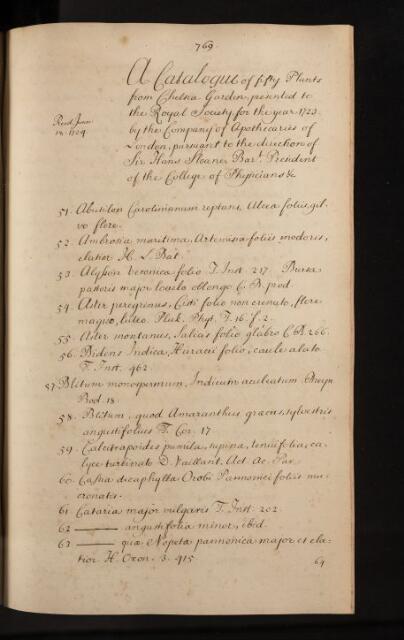 769.
A Catalogue of fifty Plants
from Chelsea Garden, presented to
the Royal Society for the year 1723.
by the Company of Apothecaries of
London, pursuant to the direction of
Sir Hans Sloane Bart. President
of the College of Physicians &c
Read June
1724
51. Abutilon Carolinianum reptans, Alceæ foliis, gil-
vo flore.
52. Ambrosia maritima, Artemisiæ foliis inodoris,
elatior H. L. Bat.
53. Alysson Veronicæ folio T. Inst. 217. Bursa
pastoris major loculo oblongo C. B. prod.
54. Aster peregrinus, Cisti folio non crenato, flore
magno, luteo. Pluk. Phyt. T. 16. f. 2.
55. Aster montanus, Salicis folio glabro C. B. 266.
56. Bidens Indica, Hieracii folio, caule alato
T. Inst. 462.
57. Blitum monospermum, Indicum aculeatum Breyn
Prod. 18.
58. Blitum, quod Amaranthus græcus, sylvestris
angustifolius T. Cor. 17
59. Calcitrapoides pumila, supina, tenuifolia, ca-
lyce turbinato D. Vaillant. Act. Ac. Par.
60. Cassia decaphylla Orobi Pannonici foliis mu-
cronatis.
61 Cataria major vulgaris T. Inst. 202.
62 ——— angustifolia minor, ibid.
63 ——— quæ Nepeta pannonica major et ela-
tior H. Oxon. 3. 415
64